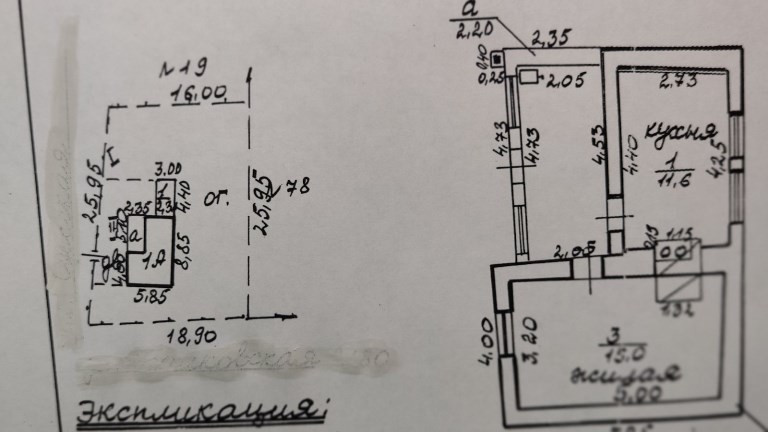 №19
16,00
25,95
Г
3.00
1
4,40
ог.
25,95
78
2,35
а
1А
8,85
4,00
5,85
18,90
Экспликация:
а
2,20
2,35
0,25
2,05
2,73
4,73
4,73
4,53
4,40
кухня
1
11,6
4,25
2,05
1.15
132
4.00
3,20
3
15.0
жилая
5,00